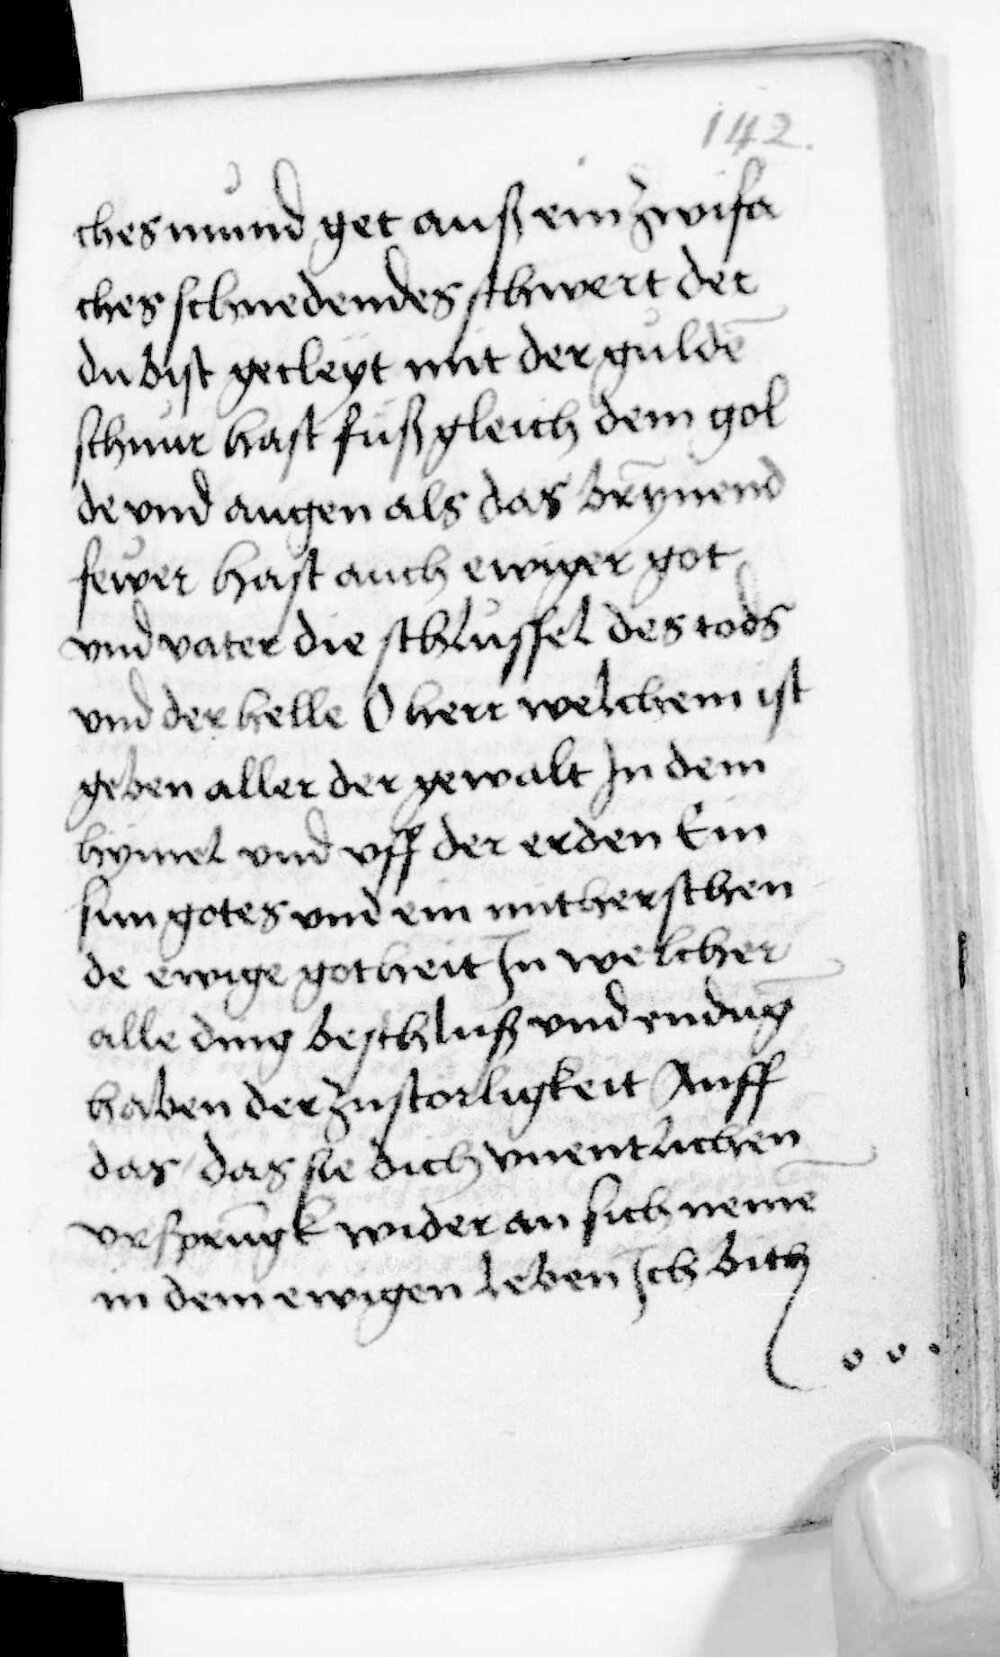 142.
ches mund get auß ein zwifa
ches schnedendes schwert der
du bist gecleyt mit der guldē
schnur hast fuß gleich dem gol
de vnd augen als das br̄ynend
fewer hast auch ewiger got
vnd vater die schlussel des tods
vnd der helle O herr welchem ist
geben aller der gewalt In dem
hymel vnd vff der erden Ein
sun gotes vnd ein mitherschen
de ewige gotheit In welcher
alle ding beschluß vnd endūg
haben der zustorligkeit Auff
das / das sie dich vnentlichen
vrsprūgk wider an sich nemē
in dem ewigen leben Ich bith